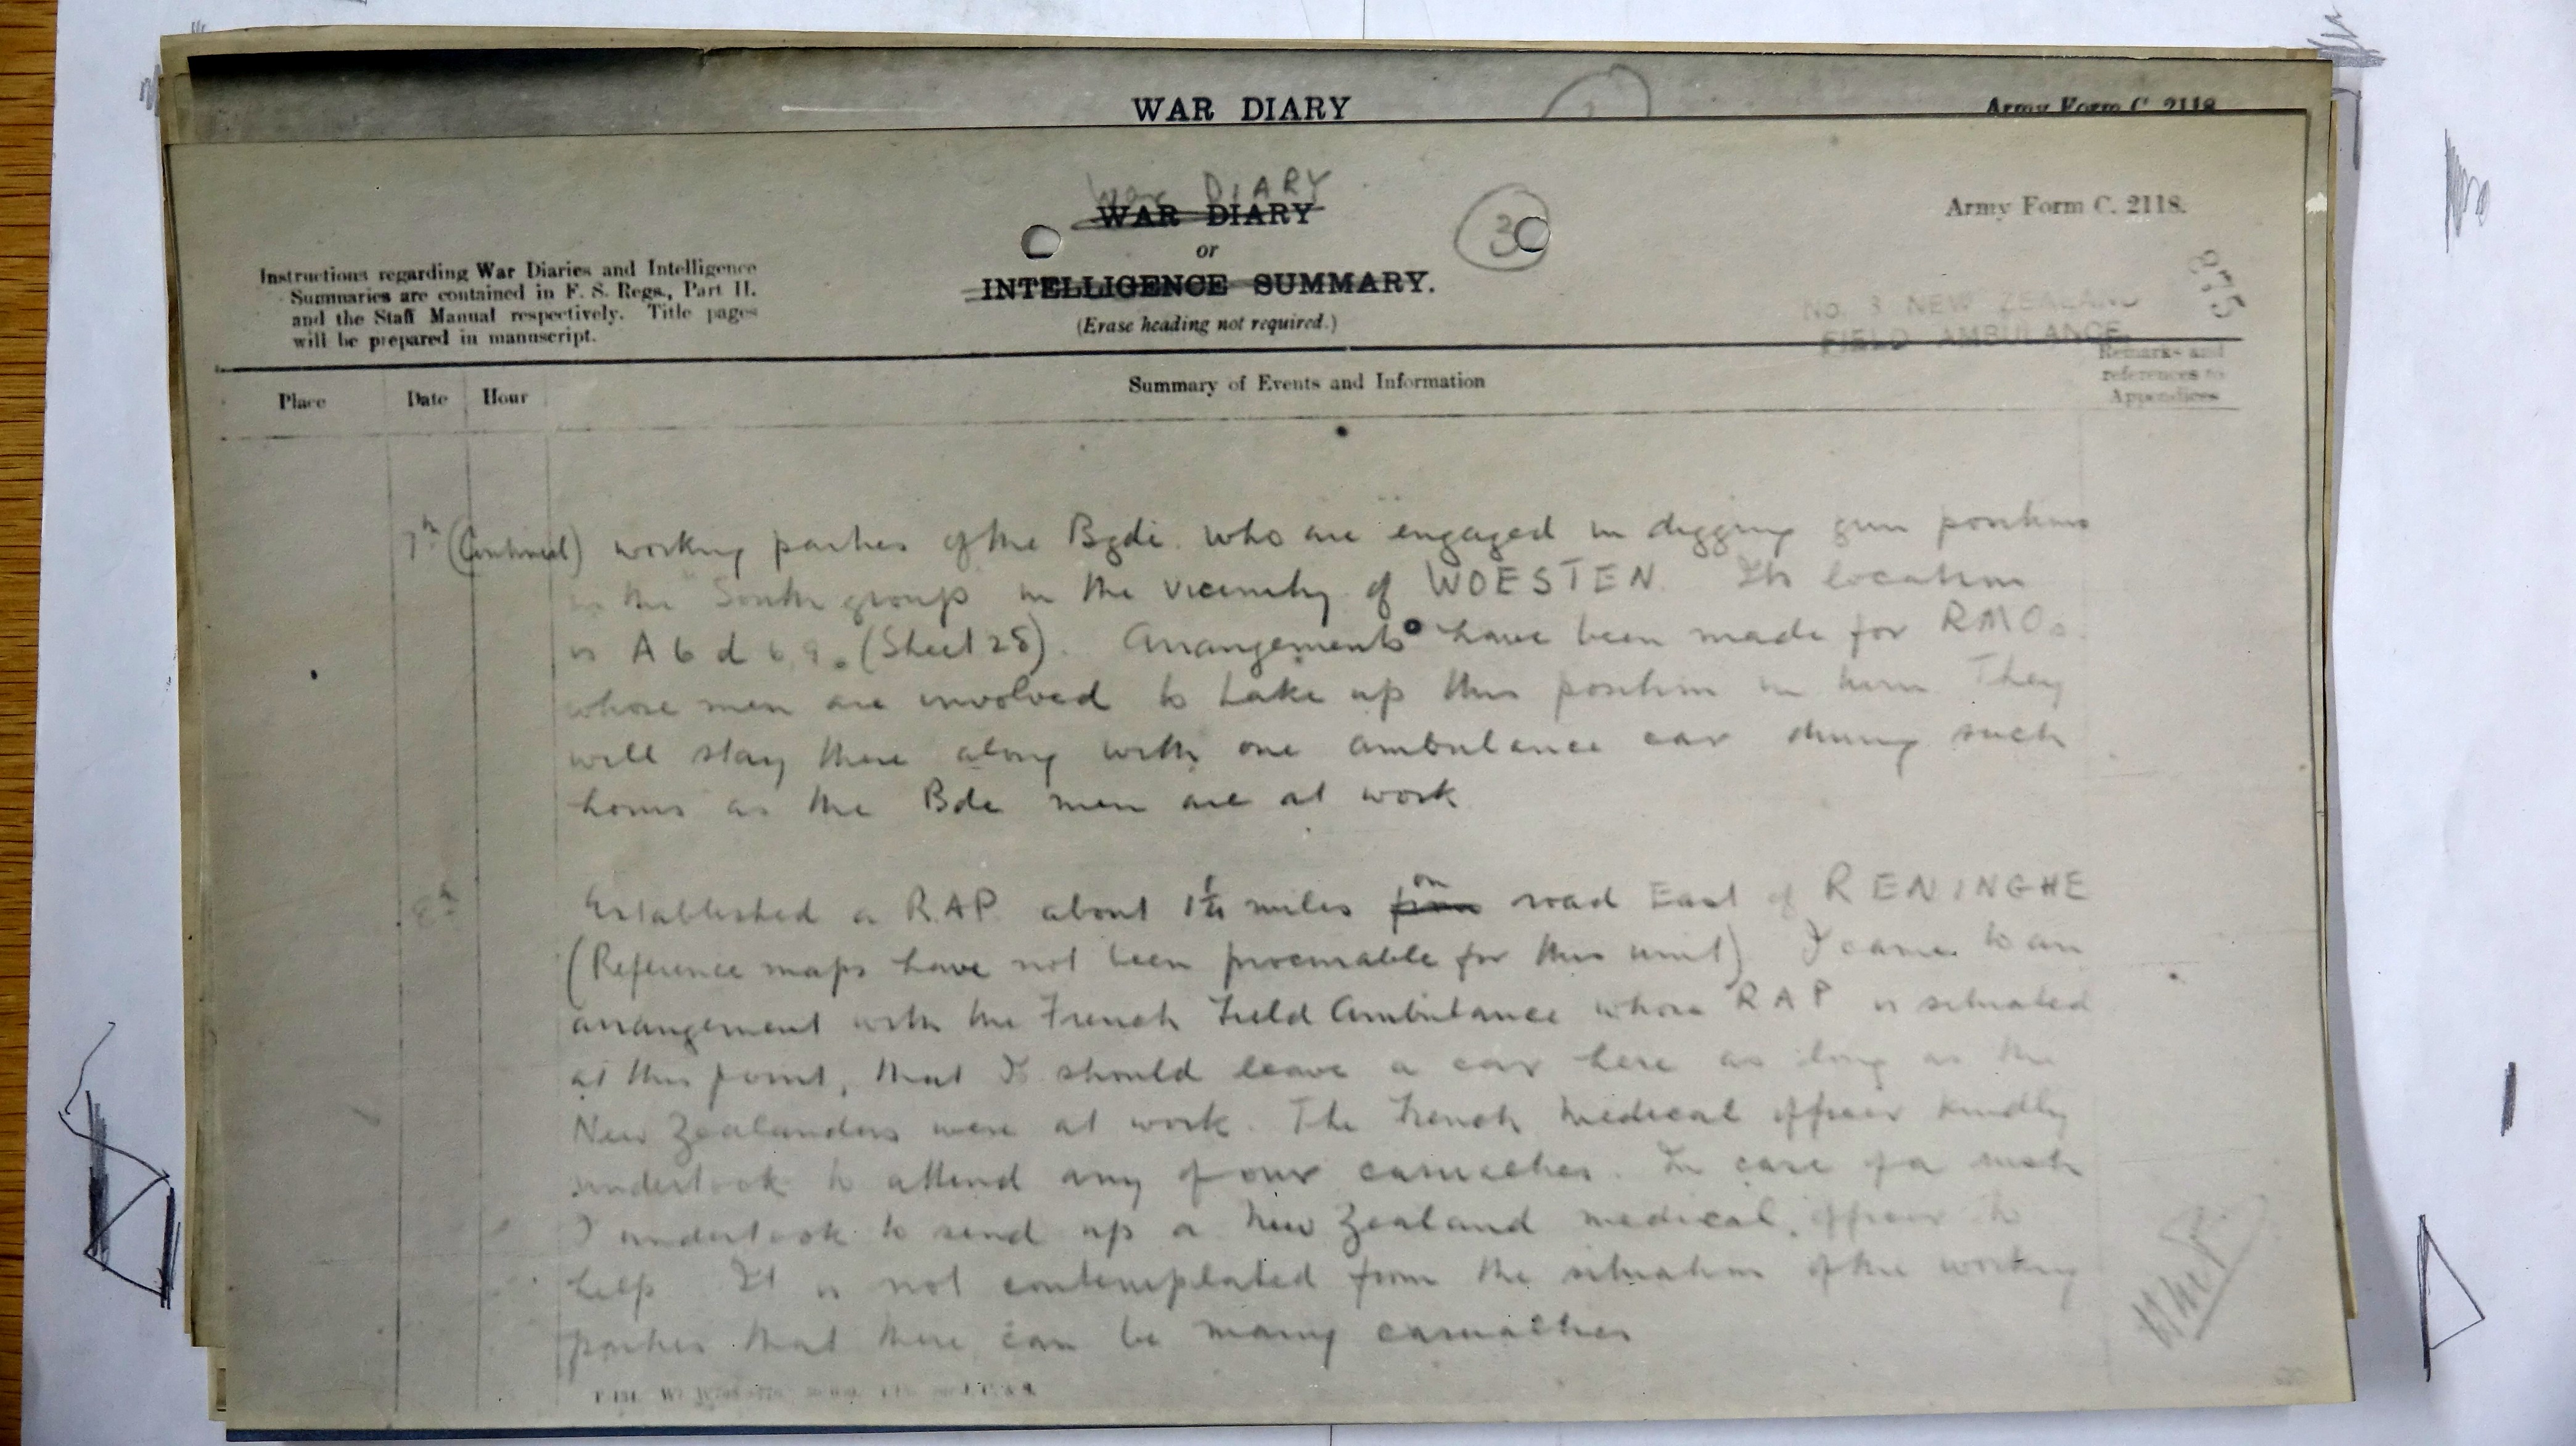 WAR DIARY
Army Form C. 2118
War DIARY
WAR DIARY
or
INTELLIGENCE SUMMARY.
(Erase heading not required.)
3
Army Form C. 2118.
875
Instructions regarding War Diaries and Intelligence
Summaries are contained in F. S. Regs., Part II.
and the Staff Manual respectively. Title pages
will be prepared in manuscript.
No. 3 NEW ZEALAND
FIELD AMBULANCE.
Place
Date
Hour
Summary of Events and Information
Remarks and
references to
Appendices
7th (Continued) working parties of the Bgde. who are engaged in digging gun positions
in the South group in the vicinity of WOESTEN. Its location
is A 6 d 6.9. (Sheet 28). Arrangements have been made for RMOs
whose men are involved to take up this position in turn. They
will stay there along with one ambulance car during such
hours as the Bde men are at work
8th
Established a RAP about 1½ miles from on road East of RENINGHE
(Reference maps have not been procurable for this unit) I came to an
arrangement with the French Field Ambulance whose RAP is situated
at this point, that I should leave a car here as long as the
New Zealanders were at work. The French Medical officer kindly
undertook to attend any of our casualties. In case of a rush
I undertook to send up a New Zealand medical officer to
help It is not contemplated from the situation of the working
parties that there can be many casualties